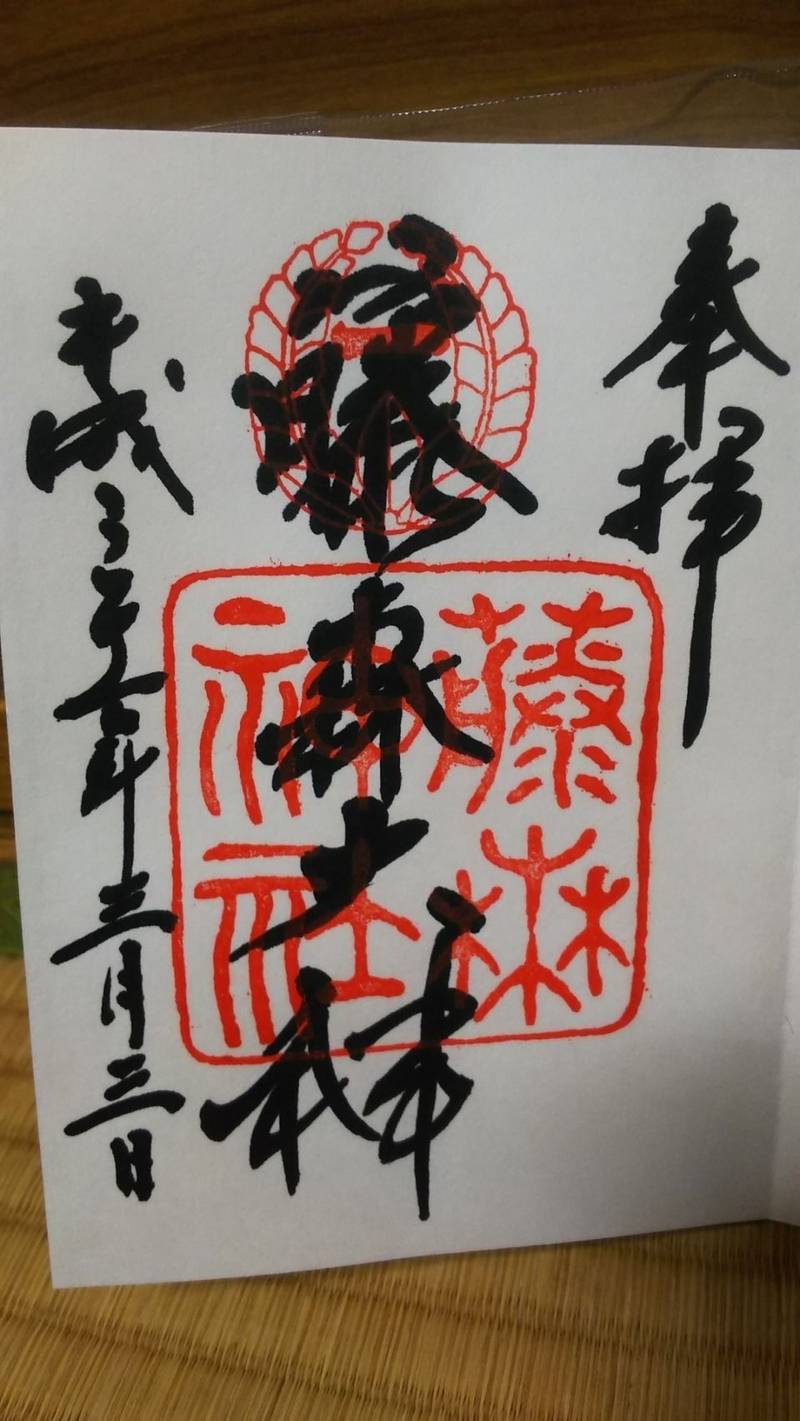 奉拝
藤森
藤森
神社
平成二十六年三月三日